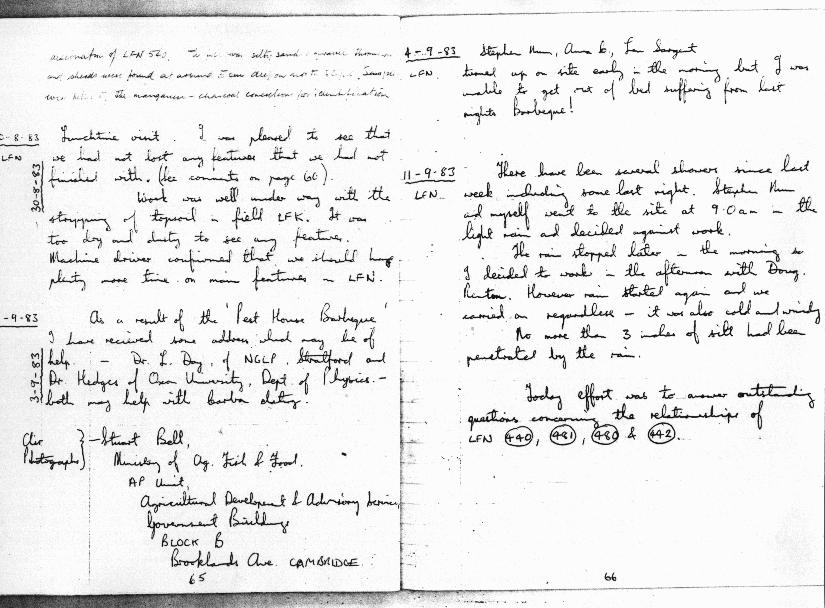 excavation of LFN 520.
and sherds were found at around 5cm
the manganese - charcoal concretion for identification
0-8-83 Lunchtime visit. I was pleased to see that
LFN we had not lost any features that we had not
30-8-83 finished with. (See comments on page 66).
Work was well under way with the
stripping of topsoil in field LFK. It was
too dry and dusty to see any features.
Machine driver confirmed that we should have
plenty more time on main features in LFN.
-9-83 As a result of the 'Pest House Barbeque
I have received some address which may be of
3-9-83 help. - Dr. L. Day, of NGLP, Stratford and
Dr. Hedges of Oxon University, Dept. of Physics. -
both may help with Carbon dating.
Air Photographs } - Stuart Bell,
Ministry of Ag. Fish & Food.
AP Unit,
Agricultural Development & Advisory Service,
Government Buildings
BLOCK B
Brooklands Ave. CAMBRIDGE.
65
4-9-83 Stephen, Anna G, Ian Sargent
LFN. turned up on site early in the morning but I was
unable to get out of bed suffering from last
nights Barbeque!
11-9-83 There have been several showers since last
LFN. week including some last night. Stephen
and myself went to the site at 9.0am in the
light rain and decided against work.
The rain stopped later in the morning so
I decided to work in the afternoon with Doug.
Renton. However rain started again and we
carried on regardless - it was also cold and windy
No more than 3 inches of silt had been
penetrated by the rain.
Today effort was to answer outstanding
questions concerning the relationships of
LFN 440, 481, 480 & 442.
66